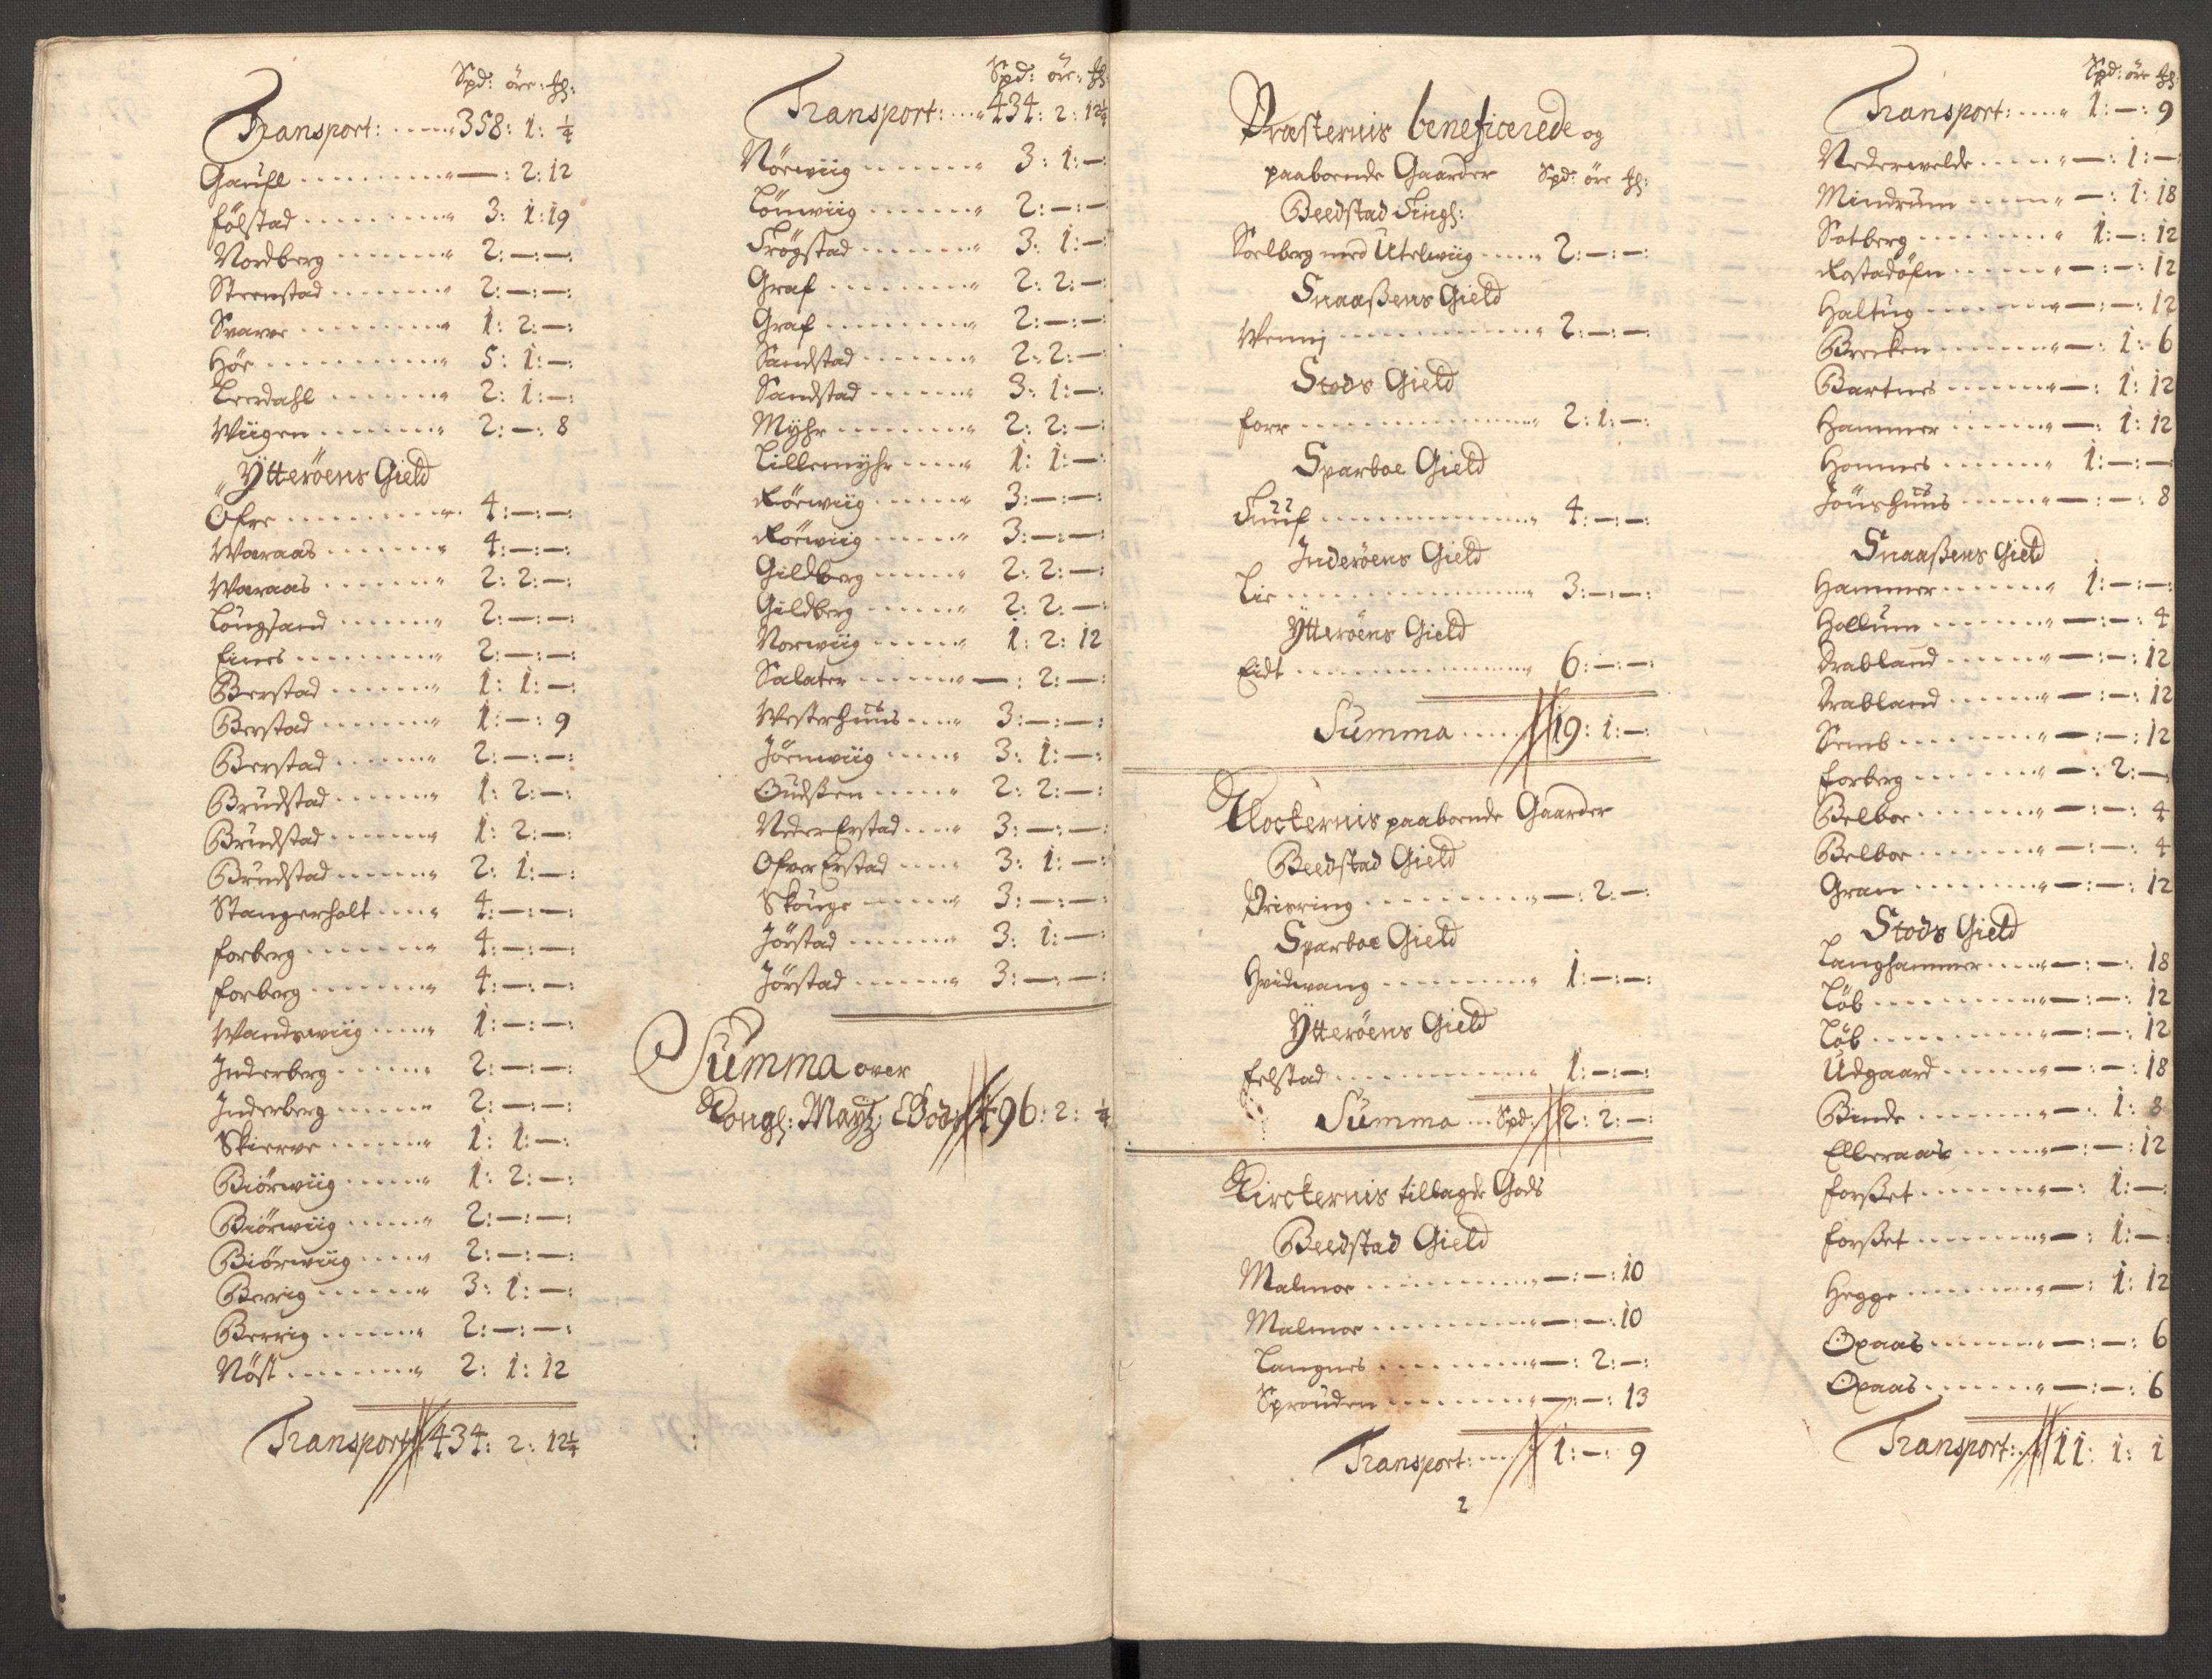 Spd: öre: ꝑ:
Transport: ..... 358: 1: ¼
Gaufl ......... —: 2: 12
Fölstad ......... 3: 1: 19
Nordberg ....... 2: —: —:
Steenstad ....... 2: —: —:
Svarve ......... 1: 2: —:
Höe ......... 5: 1: —:
Leerdahl ....... 2: 1: —:
Wiigen ....... 2: —: 8
Ytteröens Gield
Öfre ......... 4: —: —:
Waraas ....... 4: —: —:
Waraas ....... 2: 2: —:
Löngsand ...... 2: —: —:
Eines ........ 2: —: —:
Berstad ...... 1: 1: —:
Berstad ...... 1: —: 9
Berstad ...... 2: —: —:
Brudstad ...... 1: 2: —:
Brudstad ...... 1: 2: —:
Brudstad ...... 2: 1: —:
Stangerholt .... 4: —: —:
Forberg ....... 4: —: —:
Forberg ....... 4: —: —:
Wandswiig .... 1: —: —:
Inderberg ...... 2: —: —:
Inderberg ...... 2: —: —:
Skierve ...... 1: 1: —:
Biörwiig ..... 1: 2: —:
Biörwiig ..... 2: —: —:
Biörwiig ..... 2: —: —:
Berrig ...... 3: 1: —:
Berrig ...... 2: —: —:
Nöst ........ 2: 1: 12
Transport 434: 2: 12¼
Spd: öre: ꝑ:
Transport: .... 434: 2: 12¼
Nörwiig ....... 3: 1: —:
Lönwiig ....... 2: —: —
Trögstad ....... 3: 1: —:
Graf ......... 2: 2: —:
Graf ......... 2: —: —:
Sandstad ....... 2: 2: —:
Sandstad ....... 3: 1: —:
Myhr ........ 2: 2: —:
Lillemyhr ..... 1: 1: —:
Rörwiig ...... 3: —: —:
Rörwiig ...... 3: —: —:
Gildberg ...... 2: 2: —:
Gildberg ...... 2: 2: —:
Norwiig ...... 1: 2: 12
Salater ...... —: 2: —:
Westerhuus .... 3: —: —:
Jörnwiig ..... 3: 1: —:
Oudßen ..... 2: 2: —:
Neder Erstad .... 3: —: —:
Ofver Erstad .... 3: 1: —:
Skönge ...... 3: —: —:
Jörstad ...... 3: 1: —:
Jörstad ...... 3: —: —:
Summa over
Kongl: Maytz: Godz 496: 2: ¼
Præsternis beneficerede og
paaboende Gaarder Spd: öre ꝑ:
Beedstad Tingl:
Soelberg med Utelwiig .... 2: —: —:
Snaaßens Gield
Wennj ............ 2: —: —:
Stods Gield
Forr ............ 2: 1: —:
Sparboe Gield
Tuuf ............ 4: —: —:
Inderöens Gield
Lie ............ 3: —: —:
Ytteröens Gield
Eidt ............ 6: —: —:
Summa ..... 19: 1: —:
Klockernis paaboende Gaarder
Beedstad Gield
Prisring .......... —: 2: —:
Sparboe Gield
Hvidevang ......... 1: —: —:
Ytteröens Gield
Felstad ............ 1: —: —:
Summa ... Spd: 2: 2: —:
Kirckernis tillagde Gods
Beedstad Gield
Malmoe ......... —: —: 10
Malmoe ......... —: —: 10
Langnes ......... —: 2: —:
Sprouden ......... —: —: 13
Transport: ..... 1: —: 9
2
Spd: öre ꝑ:
Transport: ..... 1: —: 9
Nederwelde ..... —: 1: —
Mindrum ..... —: 1: 18
Solberg ........ 1: —: 12
Rostadöfn ...... —: —: 12
Haltug ........ —: —: 12
Brecken ....... —: 1: 6
Bartnes ...... —: 1: 12
Hammer ...... —: 1: 12
Honnes ...... 1: —: —
Jönshuus ..... —: —: 8
Snaaßens Gield
Hammer ...... 1: —: —:
Hollum ....... —: —: 4
Drabland ..... —: —: 12
Drabland ..... —: —: 12
Semb ........ —: —: 12
Forberg ....... —: 2: —
Belboe ....... —: —: 4
Belboe ....... —: —: 4
Gran ........ —: —: 12
Stods Gield
Langhammer .... —: —: 18
Löb ......... —: —: 12
Löb ......... —: —: 12
Udgaard ...... —: —: 18
Binde ....... —: 1: 8
Elberaas ..... —: —: 12
Forßet ....... —: 1: —:
Forßet ....... —: 1: —:
Hegge ........ —: 1: 12
Opaas ....... —: —: 6
Opaas ....... —: —: 6
Transport: 11: 1: 1